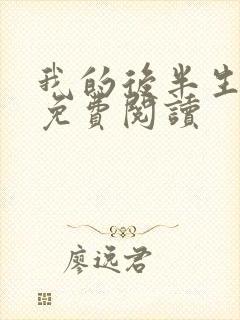 我的後半生
免費閱讀
廖远君